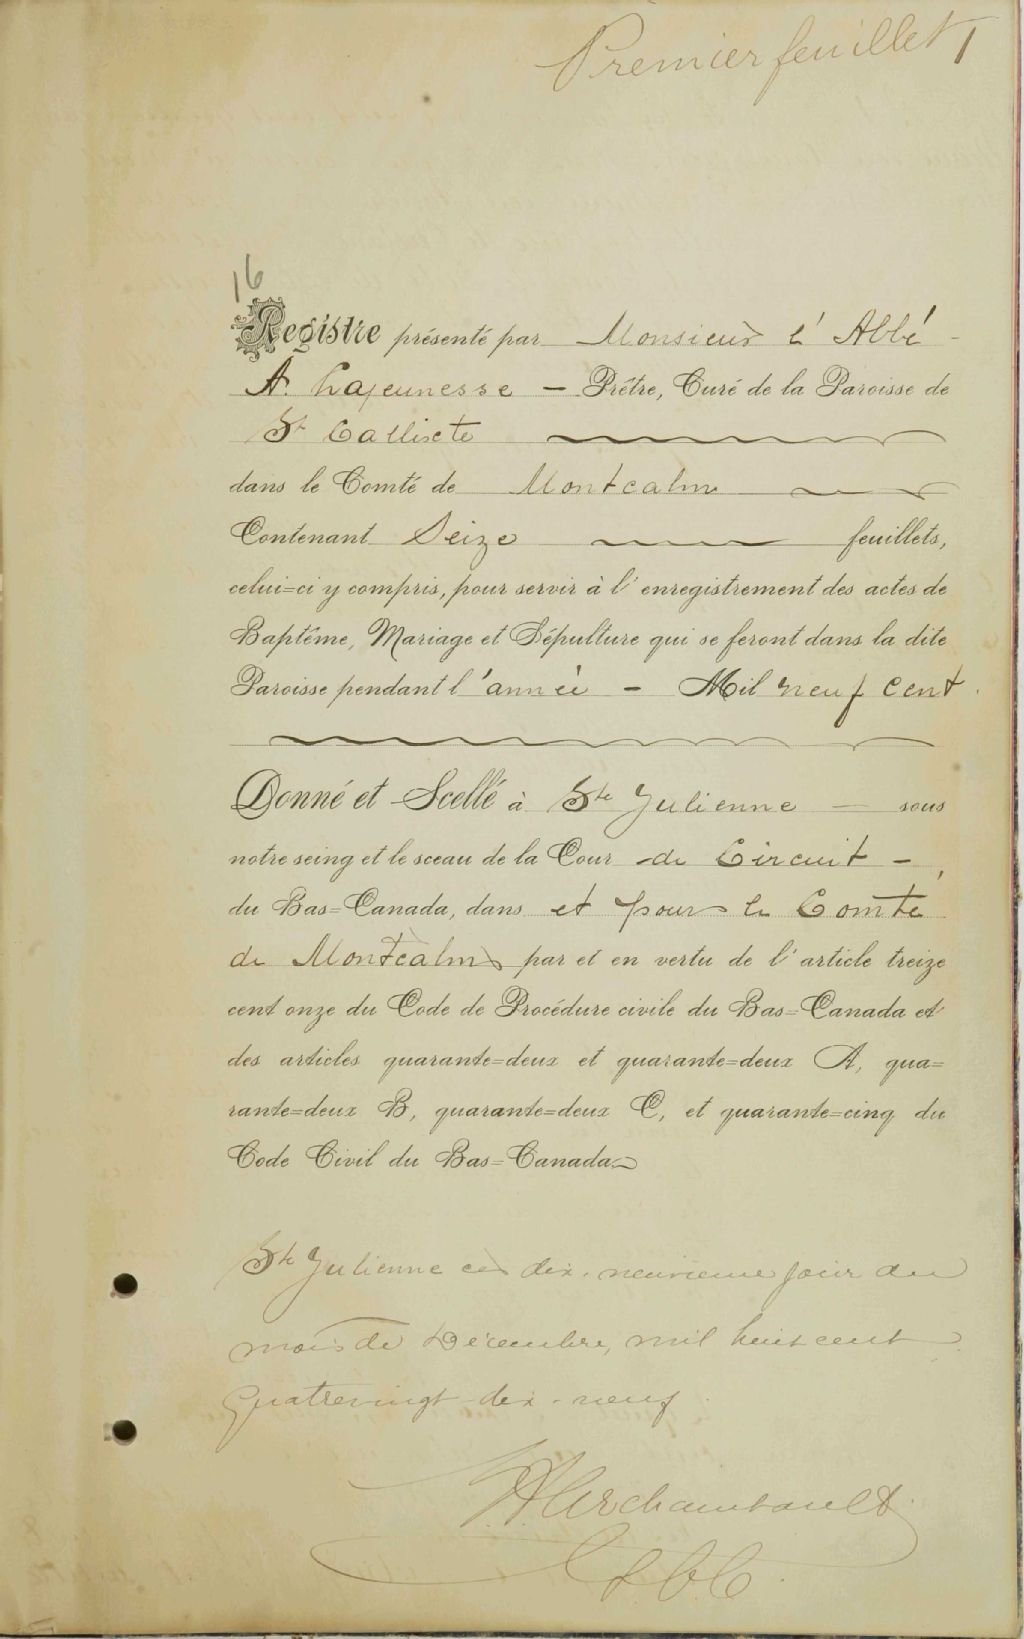 Premier feuillet 1
16
Registre présenté par Monsieur l'Abbé -
A. Lajeunesse - Prêtre, Curé de la Paroisse de
St Callixte
dans le Comté de Montcalm
Contenant Seize feuillets,
celui=ci y compris, pour servir à l'enregistrement des actes de
Baptême, Mariage et Sépulture qui se feront dans la dite
Paroisse pendant l'année - Mil neuf cent
Donné et Scellé à Ste Julienne — sous
notre seing et le sceau de la Cour de Circuit -
du Bas=Canada, dans et pour le Comté
de Montcalm par et en vertu de l'article treize
cent onze du Code de Procédure civile du Bas=Canada et
des articles quarante=deux et quarante=deux A, qua=
rante=deux B, quarante=deux C, et quarante=cinq du
Code Civil du Bas=Canada
Ste Julienne ce dix-neuvieme jour du
mois de Décembre, mil huit cent
Quatrevingt dix-neuf
Archambault